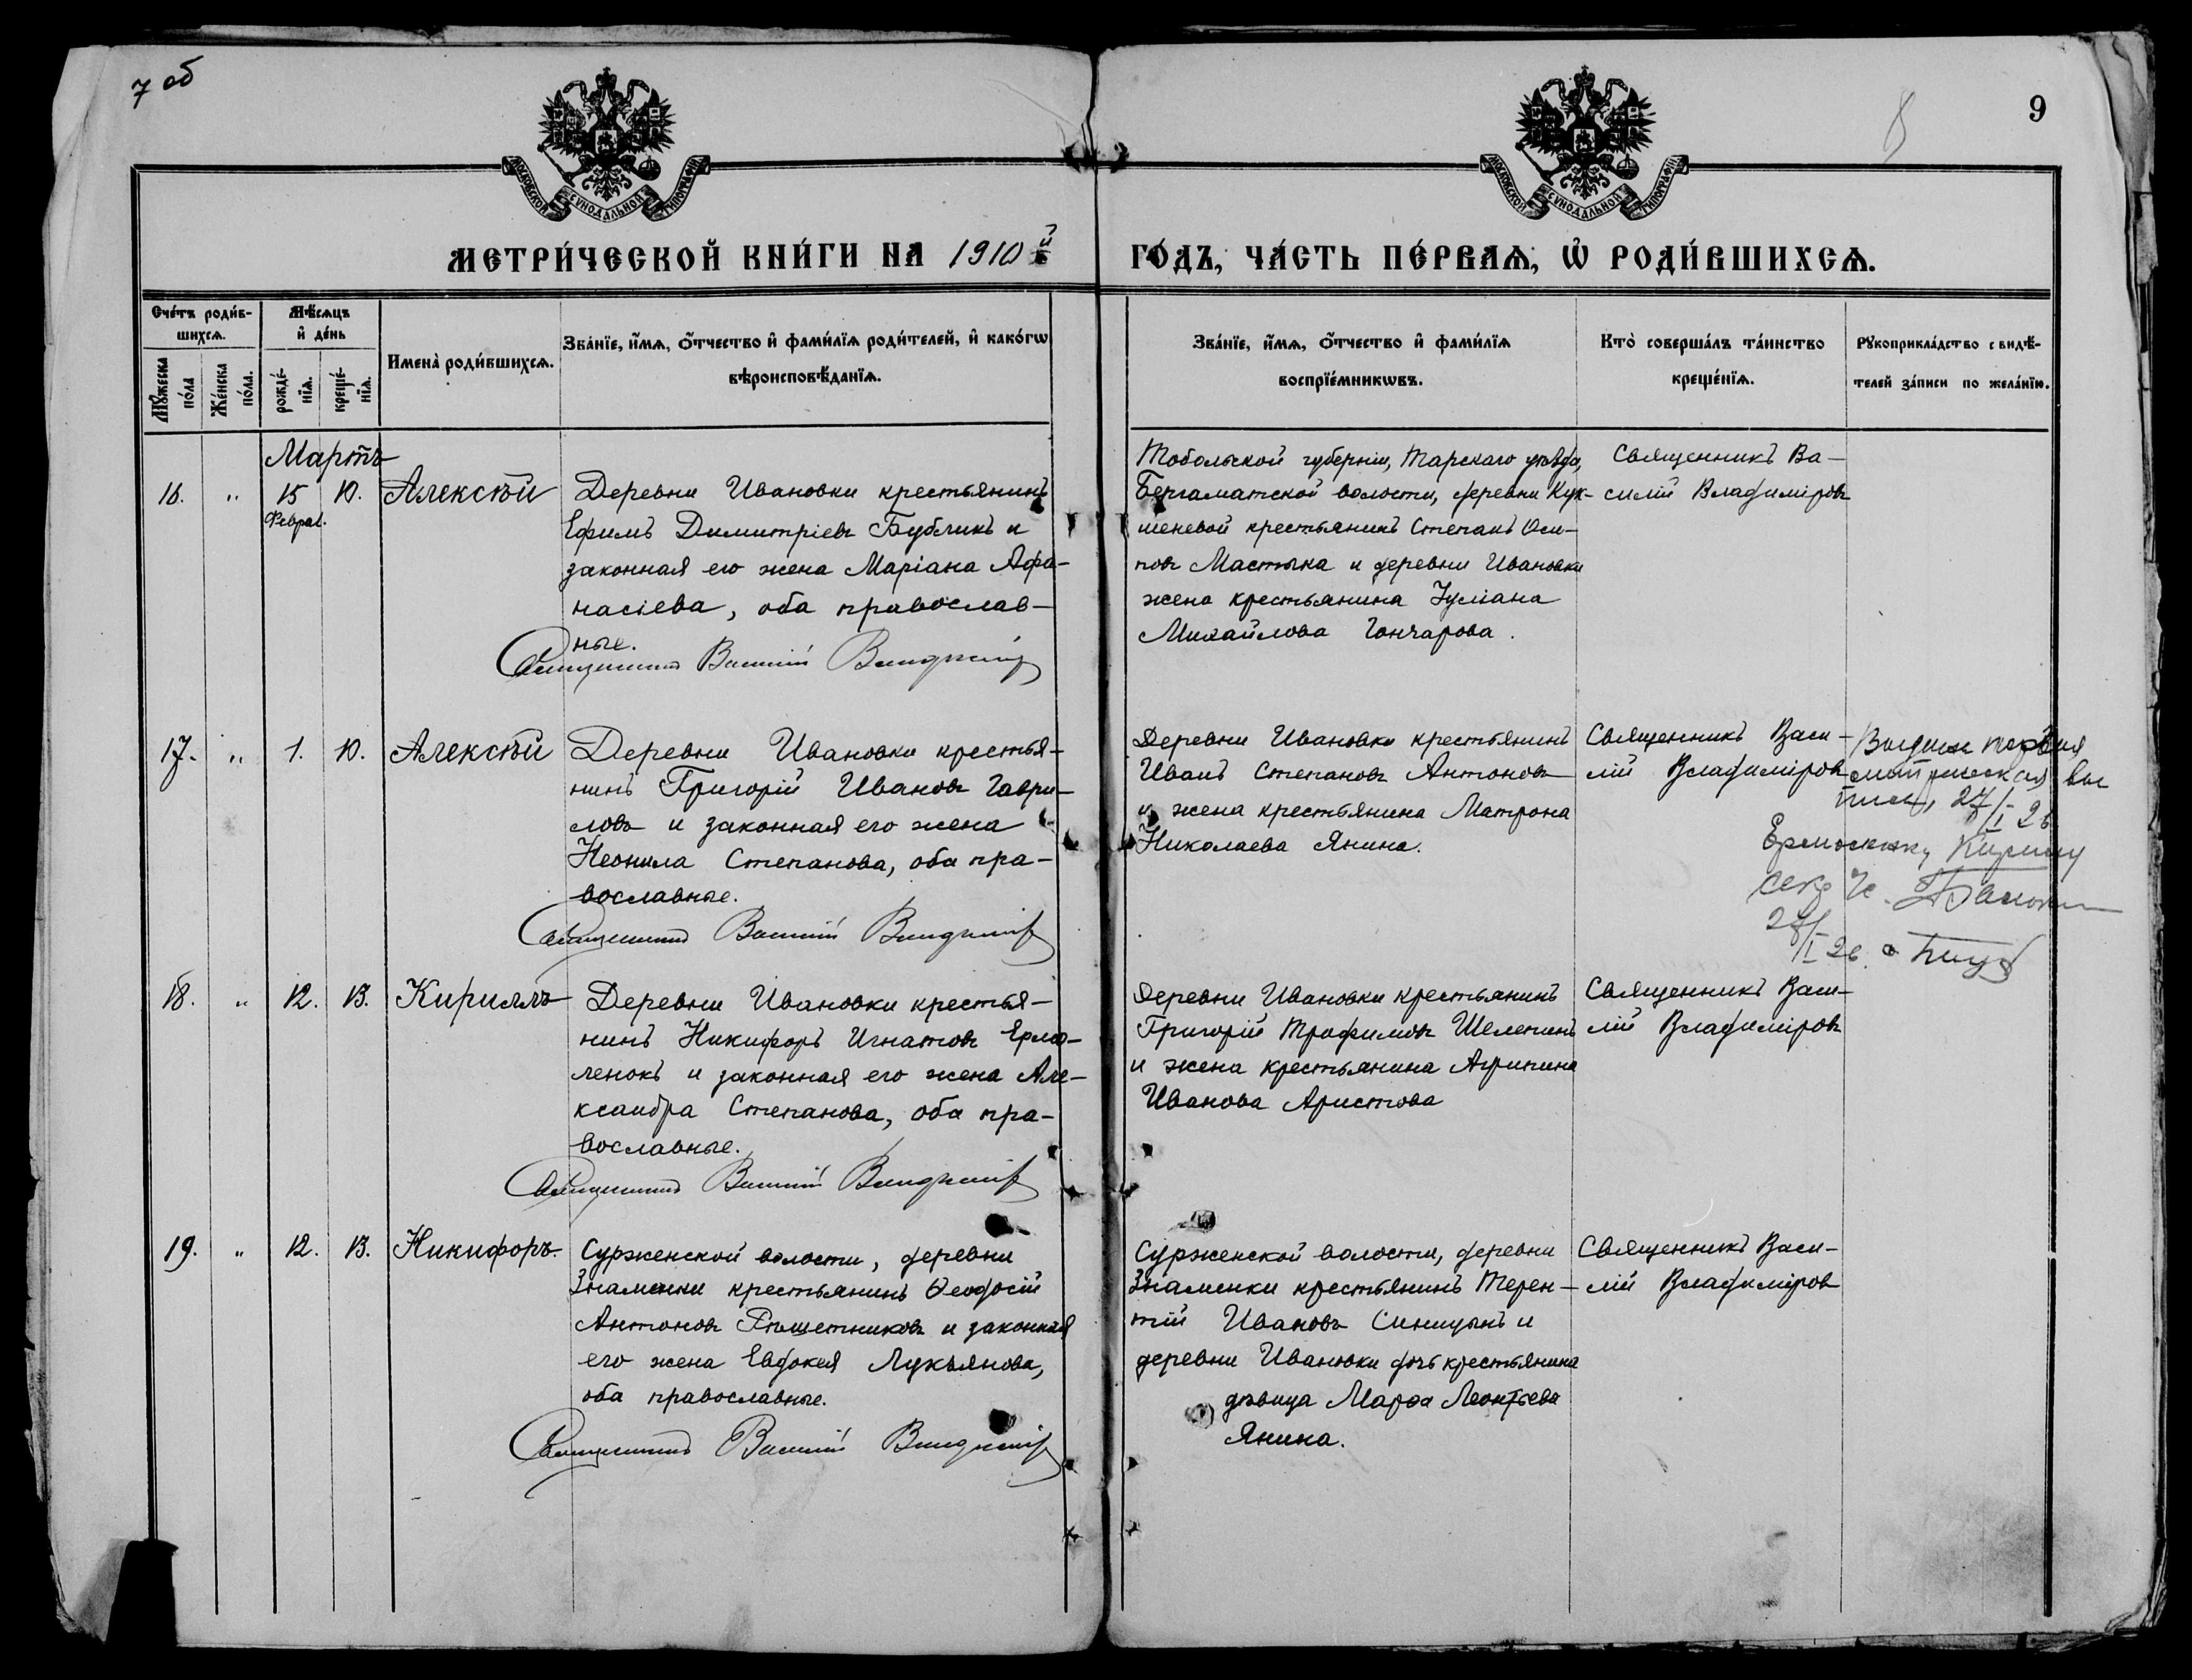 7 об
9
8
МОСКОВСКОЙ СѴНОДАЛЬНОЙ ТИПОГРАФІИ
МОСКОВСКОЙ СѴНОДАЛЬНОЙ ТИПОГРАФІИ
МЕТРИ́ЧЕСКОЙ КНИ́ГИ НА 1910й
ГО́ДЪ, ЧА́СТЬ ПЕ́РВАѦ, Ѡ҆ РОДИ́ВШИХСѦ.
Сче́тъ роди́в-
шихсѧ.
Мꙋ́жеска по́ла
Же́нска по́ла.
Мѣ́сѧцъ
и҆ де́нь
рожде́-нїѧ.
креще́-нїѧ.
Имена̀ роди́вшихсѧ.
Зва́нїе, и҆́мѧ, ѻ҆́тчество и҆ фами́лїѧ роди́телей, и҆ како́гѡ
вѣроисповѣ́данїѧ.
Зва́нїе, и҆́мѧ, ѻ҆́тчество и҆ фами́лїѧ
воспрїе́мникѡвъ.
Кто̀ соверша́лъ та́инство
креще́нїѧ.
Рꙋкоприкла́дство свидѣ́-
телей за́писи по жела́нїю.
Мартъ
16. " 15 10. Алексѣй
Феврал.
Деревни Ивановки крестьянинъ
Ефимъ Димитріевъ Бубликъ и
законная его жена Маріана Афа-
насіева, оба православ-
ные.
Священникъ Василій Владиміровъ
Тобольской губерніи, Тарскаго уѣзда,
Бергаматской волости, деревни Кук-
шеневой крестьянинъ Степанъ Оси-
повъ Мастыка и деревни Ивановки
жена крестьянина Іуліана
Михайлова Гончарова.
Священникъ Ва-
силій Владиміровъ
17. " 1. 10. Алексѣй
Деревни Ивановки крестья-
нинъ Григорій Ивановъ Гаври-
ловъ и законная его жена
Неонила Степанова, оба пра-
вославные.
Священникъ Василій Владиміровъ
Деревни Ивановки крестьянинъ
Иванъ Степановъ Антоновъ
и жена крестьянина Матрона
Николаева Янина.
Священникъ Васи-
лій Владиміровъ
метрическая вы
пись, 27/I-26
Кирилу
27/I 26.
18. " 12. 13. Кириллъ
Деревни Ивановки крестья-
нинъ Никифоръ Игнатовъ Ермо-
ленокъ и законная его жена Але-
ксандра Степанова, оба пра-
вославные.
Священникъ Василій Владиміровъ
Деревни Ивановки крестьянинъ
Григорій Трофимовъ Шелепинъ
и жена крестьянина Агрипина
Иванова Аристова
Священникъ Васи-
лій Владиміровъ
19. " 12. 13. Никифоръ.
Сурженской волости, деревни
Знаменки крестьянинъ Ѳеодосій
Антоновъ Рѣшетниковъ и законная
его жена Евдокія Лукьянова,
оба православные.
Священникъ Василій Владиміровъ
Сурженской волости, деревни
Знаменки крестьянинъ Терен-
тій Ивановъ Синицынъ и
деревни Ивановки дочь крестьянина
дѣвица Марѳа Леонтьева
Янина.
Священникъ Васи-
лій Владиміровъ